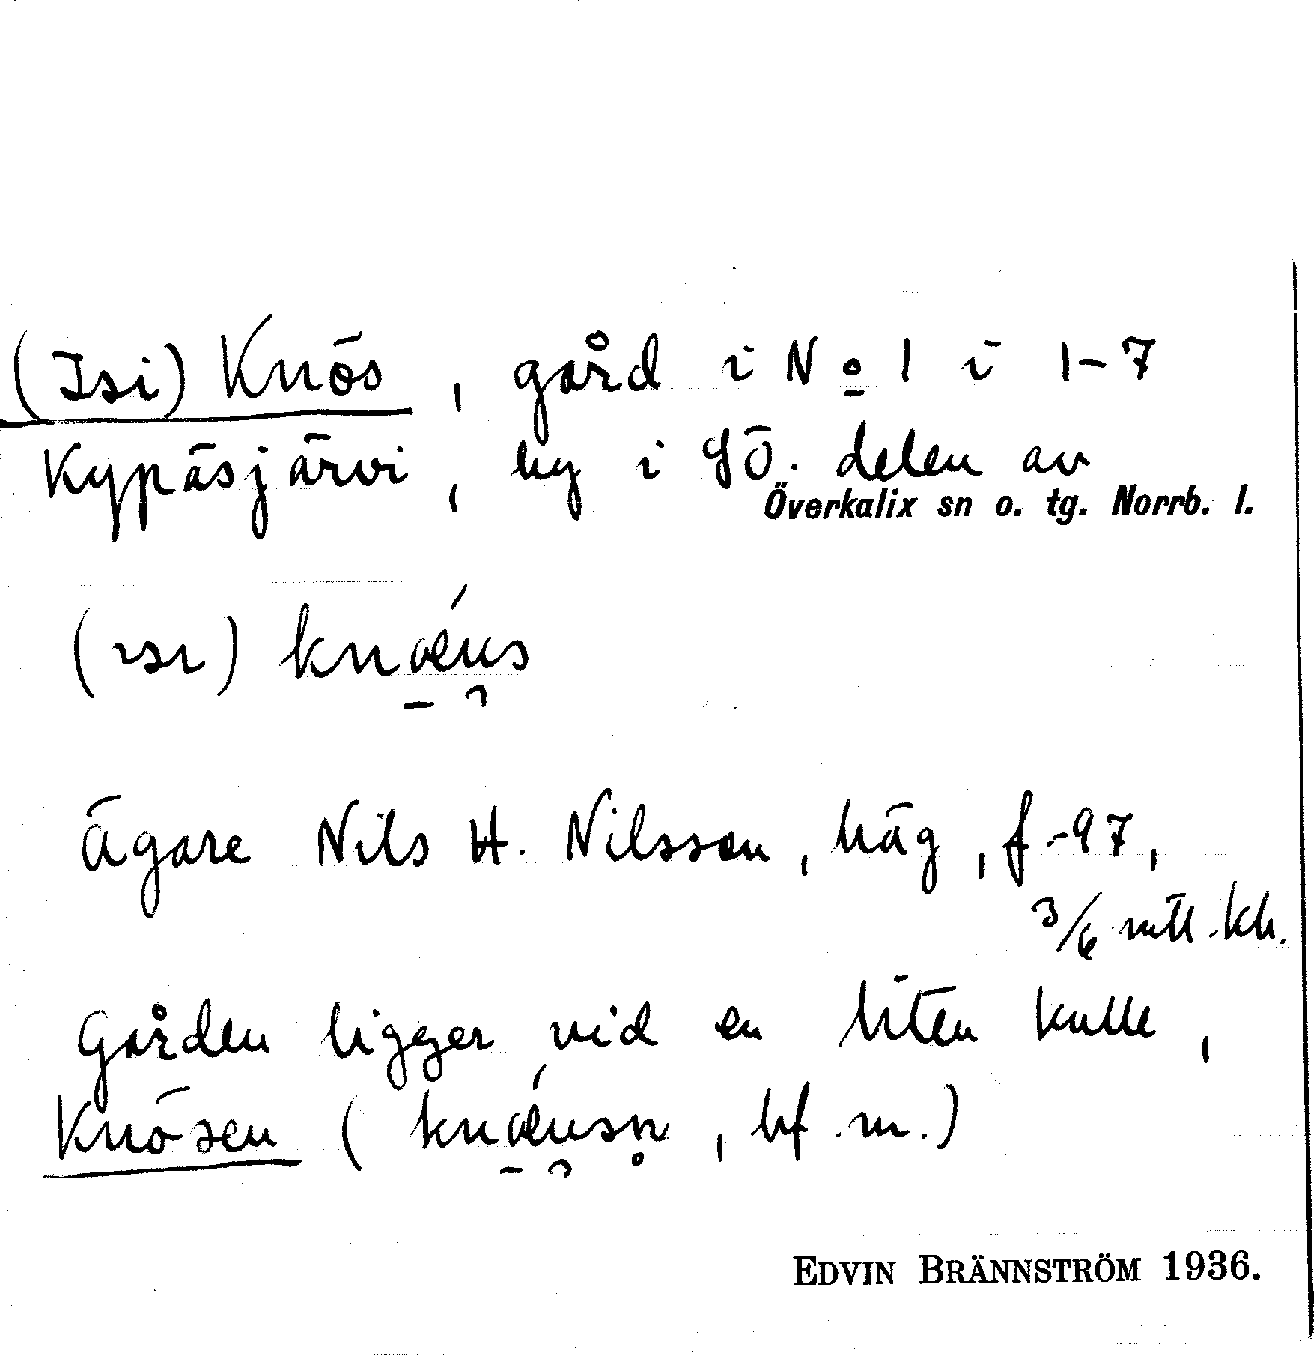 (Isi) Knös, gård i No 1 i 1-7
Kypäsjärvi, by i SÖ. delen av
Överkalix sn o. tg. Norrb. l.
(ısı) knæus
Ägare Nils H. Nilsson, häg, f.-97,
3/6 mtl. kh.
Gården ligger vid en liten kulle,
Knösen (knæusn, bf. m.)
EDVIN BRÄNNSTRÖM 1936.